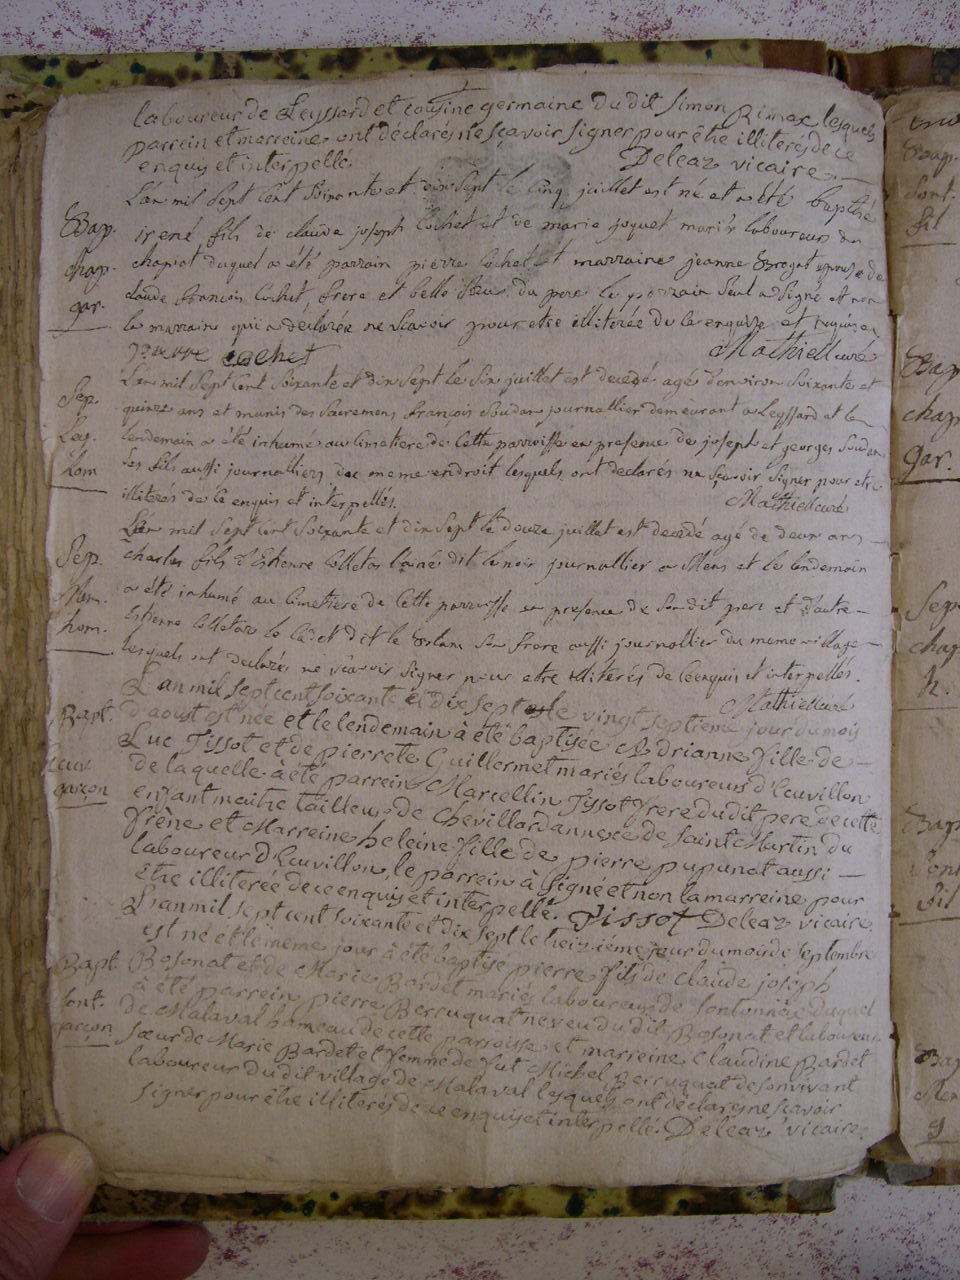 laboureur de Leyssard et cousine germaine du dit Simon Rimax lesquels
parrein et marreine ont déclarés ne sçavoir signer pour être illiterés de ce
enquis et interpellé. Deleaz vicaire.
Bap.
chap.
gar.
L'an mil sept cent soixante et dix sept le cinq juillet est né et a été baptisé
irené fils de claude joseph cochet et de marie joquet mariés laboureurs du
chapiat duquel a été parrain pierre cochet et marraine jeanne Brogat epouse de
claude francois cochet, frere et belle soeur du pere le parrain seul a signé et non
la marraine qui a declarée ne scavoir pour etre illiterée de ce enquise et requise
pierre cochet Mathieu curé
Sep.
Ley.
hom
L'an mil sept cent soixante et dix sept le six juillet est decedé agé d'environ soixante et
quinze ans et munis des sacremens françois soudan journallier demeurant a Leyssard et le
lendemain a été inhumé au cimetiere de cette parroisse en presence de joseph et georges soudan
ses fils aussi journalliers du meme endroit lesquels ont declarés ne sçavoir signer pour etre
illiterés de ce enquis et interpellés. Mathieu curé
Sep.
Men.
hom.
L'an mil sept cent soixante et dix sept le douze juillet est decedé agé de deux ans
charles fils d'Estienne colletaz l'ainé dit le noir journallier a Mens et le lendemain
a été inhumé au cimetiere de cette parroisse en presence de son dit pere et d'autre
Estienne colletaz le cadet dit le blanc son frere aussi journallier du meme village
lesquels ont declarés ne scavoir signer pour etre illiterés de ce enquis et interpellés.
Mathieu curé
Bapt.
Leuv.
garçon
L'an mil sept cent soixante et dix sept le vingt septieme jour du mois
d'aoust est née et le lendemain à été baptisée Adrianne fille de
Luc Tissot et de pierrette Guillermet mariés laboureurs d'Leuvillon
de laquelle à été parrein Marcellin Tissot frere du dit pere de cette
enfant maitre tailleur de Chevillard annexe de saint Martin du
frêne et Marreine heleine fille de pierre pupunat aussi
laboureur d'Leuvillon, le parrein à signé et non la marreine pour
être illiterée de ce enquis et interpellé. Tissot Deleaz vicaire
Bapt.
font.
garçon
L'an mil sept cent soixante et dix sept le treizième jour du mois de septembre
est né et le meme jour à été baptisé pierre fils de claude joseph
Bosonat et de Marie Bardet mariés laboureurs de fontonniac duquel
à été parrein pierre Berruquat neveu du dit Bosonat et laboureur
de Malaval hameau de cette parroisse et marreine Claudine Bardet
sœur de Marie Bardet et femme de fut Michel Berruquat de son vivant
laboureur du dit village de Malaval lesquels ont déclarés ne scavoir
signer pour être illiterés de ce enquis et interpellé. Deleaz vicaire.
Bap.
font.
fil
Bap
chap
gar.
Sep
chap
h.
Bap
font
fil
Bap
Men
g